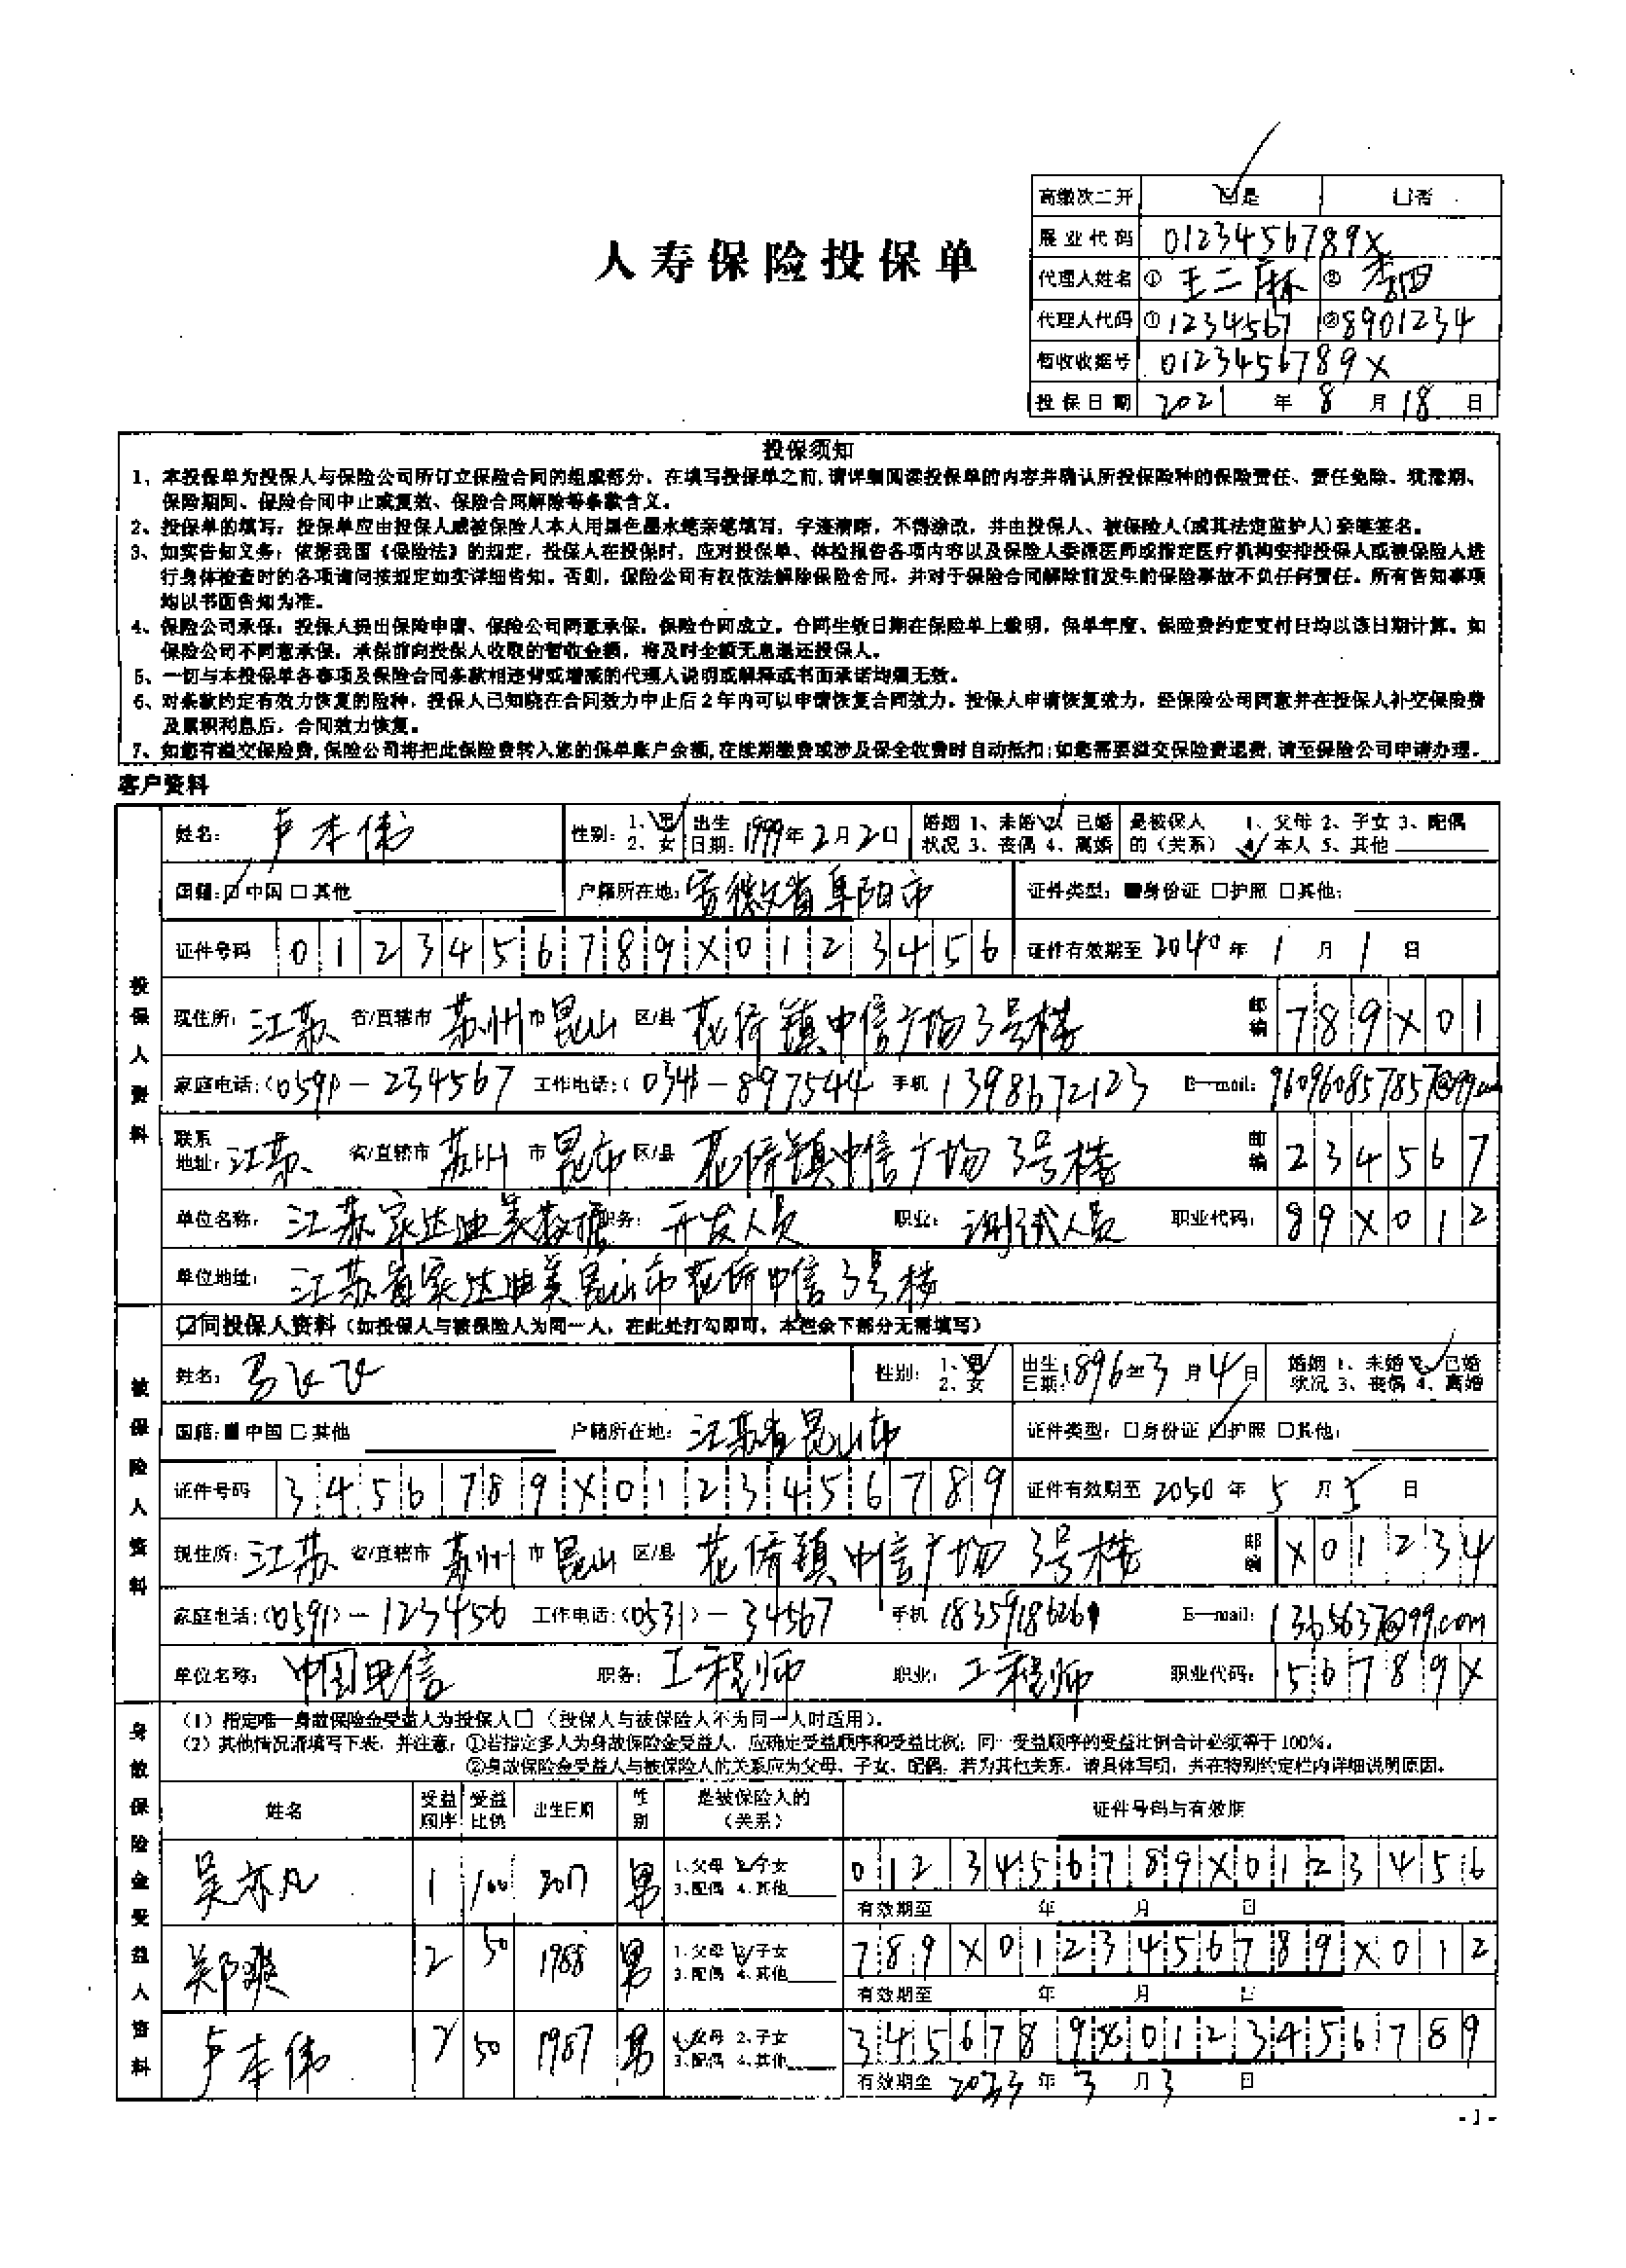 高缴次二开 ☑是 □否
人寿保险投保单
展业代码 0123456789X
代理人姓名 ① 王二麻 ② 李四
代理人代码 ①1234567 ②8901234
暂收收据号 0123456789X
投保日期 2021 年 8 月 18 日
投保须知
1、本投保单为投保人与保险公司所订立保险合同的组成部分。在填写投保单之前,请详细阅读投保单的内容并确认所投保险种的保险责任、责任免除、犹豫期、
保险期间、保险合同中止或复效、保险合同解除等条款含义。
2、投保单的填写:投保单应由投保人或被保险人本人用黑色墨水笔亲笔填写,字迹清晰,不得涂改,并由投保人、被保险人(或其法定监护人)亲笔签名。
3、如实告知义务:依据我国《保险法》的规定,投保人在投保时,应对投保单、体检报告各项内容以及保险人委派医师或指定医疗机构安排投保人或被保险人进
行身体检查时的各项询问按规定如实详细告知。否则,保险公司有权依法解除保险合同,并对于保险合同解除前发生的保险事故不负任何责任。所有告知事项
均以书面告知为准。
4、保险公司承保:投保人提出保险申请、保险公司同意承保,保险合同成立。合同生效日期在保险单上载明,保单年度、保险费约定支付日均以该日期计算。如
保险公司不同意承保,承保前向投保人收取的暂收金额,将及时全额无息退还投保人。
5、一切与本投保单各事项及保险合同条款相违背或增减的代理人说明或解释或书面承诺均属无效。
6、对条款约定有效力恢复的险种,投保人已知晓在合同效力中止后2年内可以申请恢复合同效力。投保人申请恢复效力,经保险公司同意并在投保人补交保险费
及累积利息后,合同效力恢复。
7、如您有溢交保险费,保险公司将把此保险费转入您的保单账户余额,在续期缴费或涉及保全收费时自动抵扣;如您需要溢交保险费退费,请至保险公司申请办理。
客户资料
投保人资料
姓名: 卢本伟 性别: 1、男 2、女 出生日期: 1999年2月2日 婚姻状况 1、未婚 2、已婚 3、丧偶 4、离婚 是被保人的(关系) 1、父母 2、子女 3、配偶 4、本人 5、其他
国籍: ☑中国 □其他 户籍所在地: 安徽省阜阳市 证件类型: ■身份证 □护照 □其他:
证件号码 0123456789X0123456 证件有效期至 2040 年 1 月 1 日
现住所: 江苏 省/直辖市 苏州 市 昆山 区/县 花桥镇中信广场3号楼 邮编 789X01
家庭电话:(0591)-234567 工作电话:(0341)-897544 手机 1398672123 E-mail: 960960857857@qq.com
联系地址: 江苏 省/直辖市 苏州 市 昆市 区/县 花桥镇中信广场3号楼 邮编 234567
单位名称: 江苏家达迪美数据 职务: 开发人员 职业: 测试人员 职业代码: 89X012
单位地址: 江苏省家达迪美昆山市花桥中信3号楼
被保险人资料
☑同投保人资料(如投保人与被保险人为同一人,在此处打勾即可,本栏余下部分无需填写)
姓名: 马飞飞 性别: 1、男 2、女 出生日期: 1896年3月4日 婚姻状况 1、未婚 2、已婚 3、丧偶 4、离婚
国籍: ■中国 □其他 户籍所在地: 江苏省昆山市 证件类型: □身份证 ☑护照 □其他:
证件号码 3456789X0123456789 证件有效期至 2050 年 5 月 5 日
现住所: 江苏 省/直辖市 苏州 市 昆山 区/县 花桥镇中信广场3号楼 邮编 X01234
家庭电话:(0591)-123456 工作电话:(0531)-34567 手机 18359186261 E-mail: 1365637@qq.com
单位名称: 中国电信 职务: 工程师 职业: 工程师 职业代码: 56789X
身故保险金受益人资料
(1)指定唯一身故保险金受益人为投保人□(投保人与被保险人不为同一人时适用)。
(2)其他情况请填写下表,并注意:①若指定多人为身故保险金受益人,应确定受益顺序和受益比例;同一受益顺序的受益比例合计必须等于100%。
②身故保险金受益人与被保险人的关系应为父母、子女、配偶,若为其他关系,请具体写明,并在特别约定栏内详细说明原因。
姓名 受益顺序 受益比例 出生日期 性别 是被保险人的(关系) 证件号码与有效期
吴亦凡 1 100 2017 男 1、父母 2、子女 3、配偶 4、其他 0123456789X0123456
有效期至 年 月 日
郑爽 2 50 1988 男 1、父母 2、子女 3、配偶 4、其他 789X0123456789X012
有效期至 年 月 日
卢本伟 2 50 1987 男 1、父母 2、子女 3、配偶 4、其他 3456789X0123456789
有效期至 2033 年 3 月 3 日
- 1 -